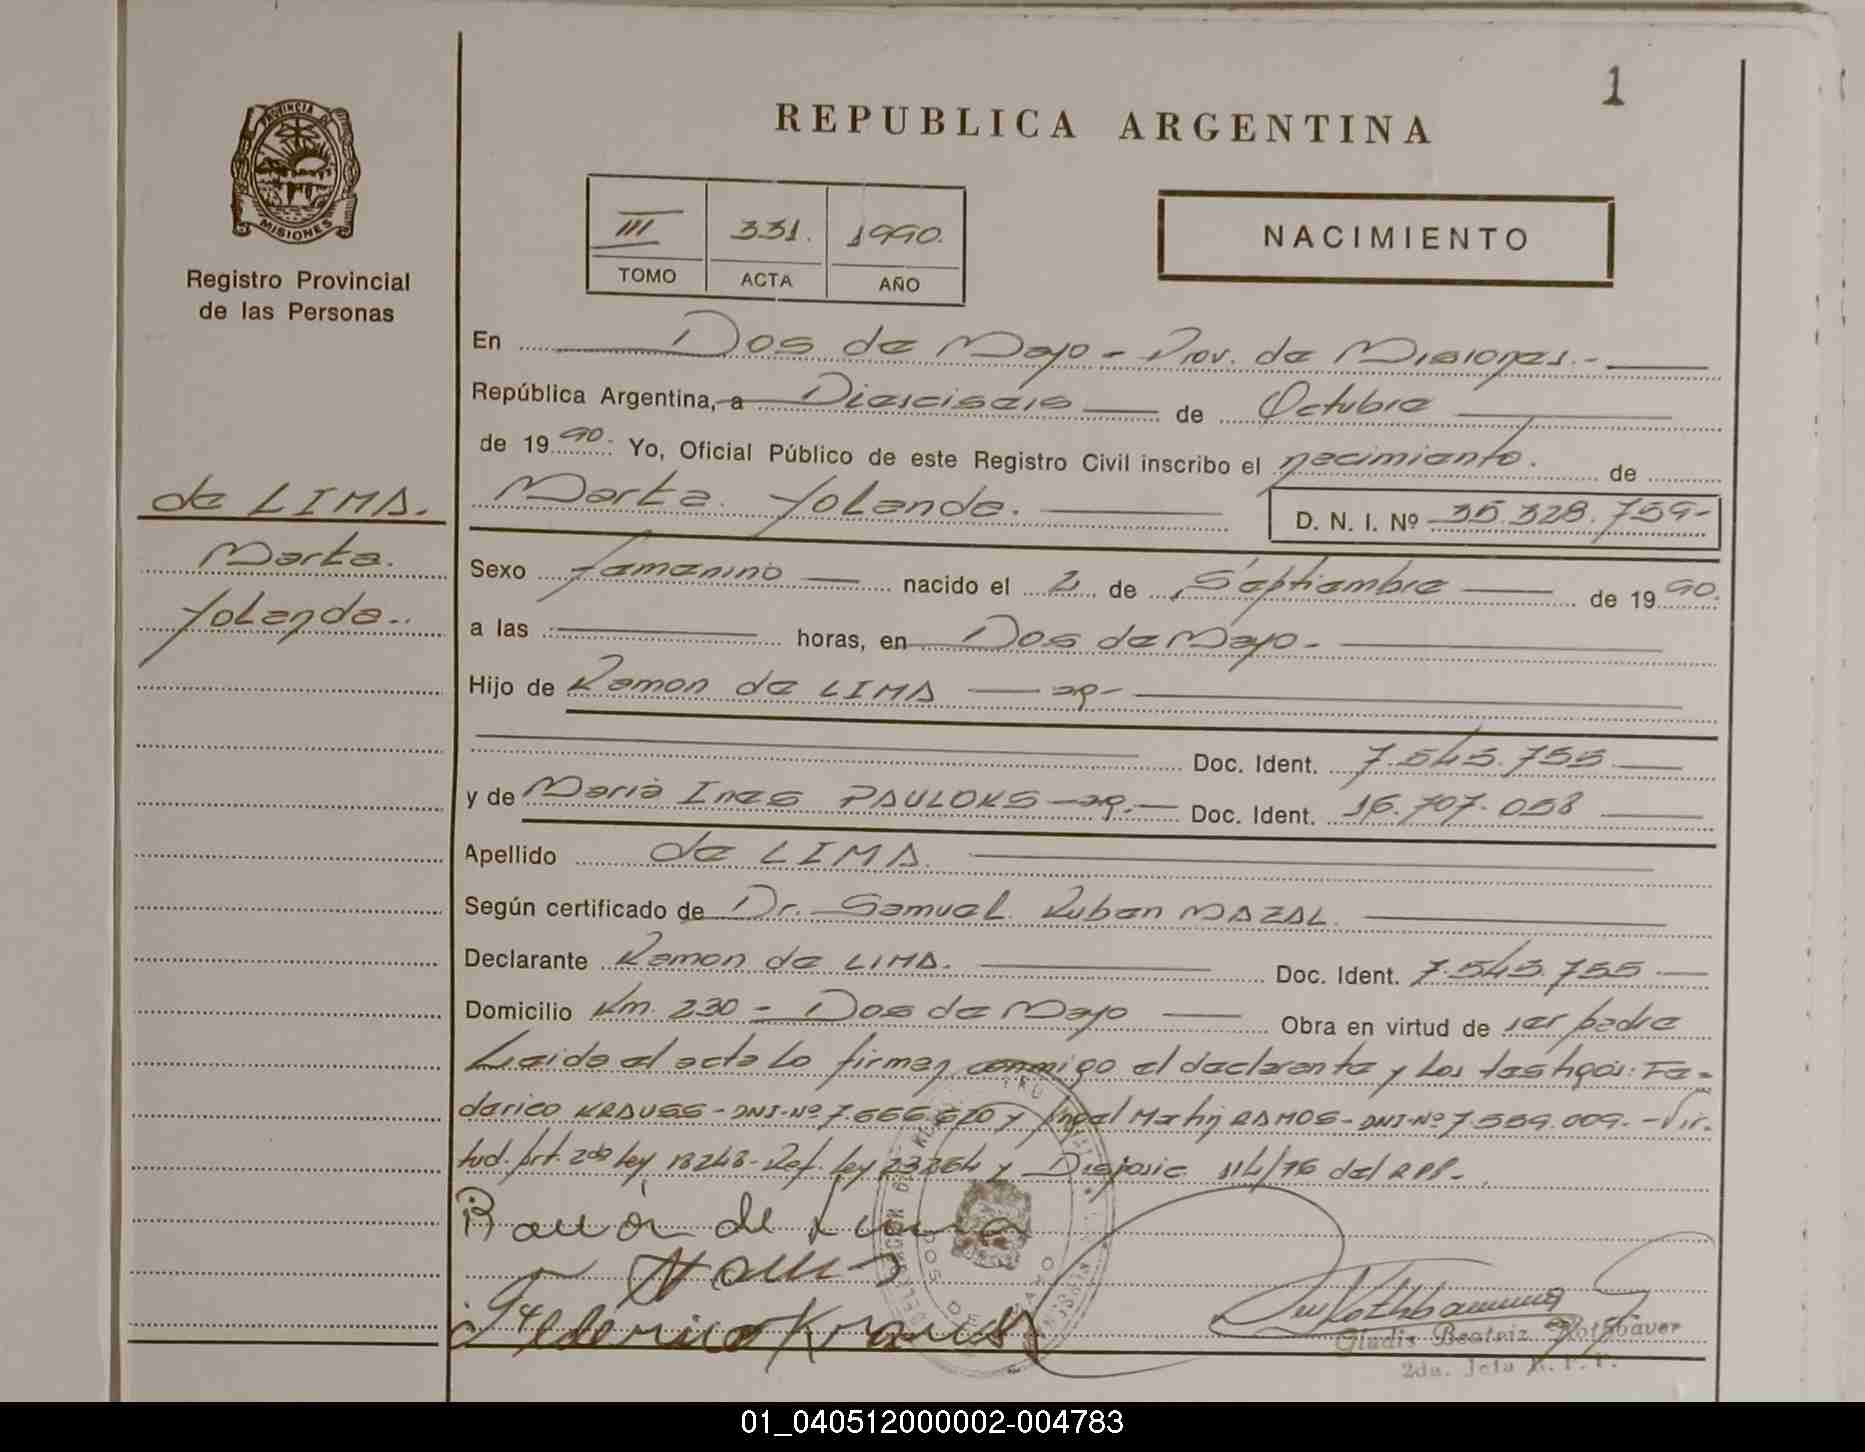 1
REPUBLICA ARGENTINA
PROVINCIA DE
MISIONES
Registro Provincial
de las Personas
III 331. 1990.
TOMO ACTA AÑO
NACIMIENTO
En Dos de Mayo - Prov. de Misiones.-
República Argentina, a Dieciseis de Octubre
de 1990. Yo, Oficial Público de este Registro Civil inscribo el nacimiento. de
Marta Yolanda. D. N. I. Nº 35.328.759-
de LIMA.
Marta.
Yolanda..
Sexo femenino nacido el 2 de Septiembre de 1990.
a las horas, en Dos de Mayo-
Hijo de Ramon de LIMA -ar-
Doc. Ident. 7.543.755
y de Maria Ines PAULOKS -ar.- Doc. Ident. 16.707.058
Apellido de LIMA.
Según certificado de Dr. Samuel Ruben MAZAL.
Declarante Ramon de LIMA. Doc. Ident. 7.543.755
Domicilio Km. 230 - Dos de Mayo Obra en virtud de ser padre
Leida el acta lo firman conmigo el declarante y los testigos: Fe-
derico KRAUSS - DNI-Nº 7.666.670 y Angel Martin RAMOS - DNI-Nº 7.559.009.- Vir-
tud. Art. 2do Ley 18248-Ref. Ley 23264 y Disposic 114/76 del RPP.-
Ramón de Lima
Federico Krauss
Gladis Beatriz Rothbauer
2da. Jefa R. P. P.
01_040512000002-004783